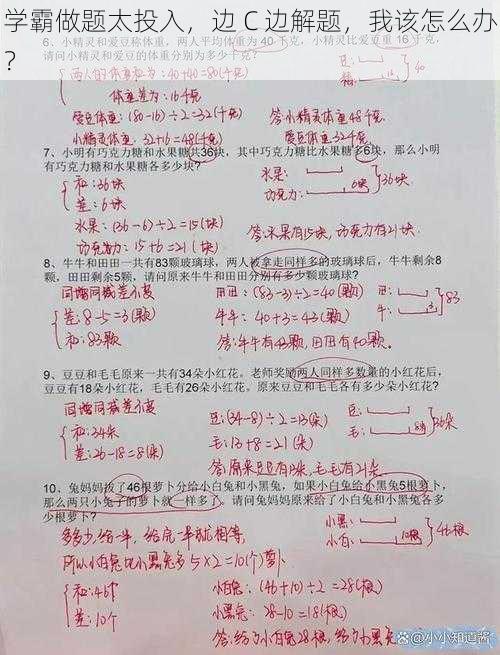 学霸做题太投入，边 C 边解题，我该怎么办
?
6、小精灵和爱豆称体重，两人平均体重为 40 千克，小精灵比爱豆重 16 千克，
请问小精灵和爱豆的体重分别为多少千克?
两人的体重和为：40+40=80(千克)
体重差为：16千克
爱豆体重：(80-16)÷2=32(千克)
小精灵体重：32+16=48(千克)
答：小精灵体重48千克，
爱豆体重32千克。
豆：
精：
16
7、小明有巧克力糖和水果糖共36块，其中巧克力糖比水果糖多6块，那么小明
有巧克力糖和水果糖各多少块?
和：36块
差：6块
水果：(36-6)÷2=15(块)
巧克力：15+6=21(块)
水果：
巧克力：
6块
36块
答：水果有15块，巧克力有21块。
8、牛牛和田田一共有83颗玻璃球，两人被拿走同样多的玻璃球后，牛牛剩余8
颗，田田剩余5颗，请问原来牛牛和田田分别有多少颗玻璃球?
同增同减差不变
差：8-5=3(颗)
和：83颗
田田：(83-3)÷2=40(颗)
牛牛：40+3=43(颗)
答：牛牛有43颗，田田有40颗。
田：
牛：
3
83
9、豆豆和毛毛原来一共有34朵小红花。老师奖励两人同样多数量的小红花后，
豆豆有18朵小红花，毛毛有26朵小红花。原来豆豆和毛毛各有多少朵小红花?
同增同减差不变
和：34朵
差：26-18=8(朵)
豆：(34-8)÷2=13(朵)
毛：13+8=21(朵)
答：原来豆豆有13朵，毛毛有21朵
豆：
毛：
10、兔妈妈拔了46根萝卜分给小白兔和小黑兔，如果小白兔给小黑兔5根萝卜，
那么两只小兔子的萝卜就一样多了，请问兔妈妈原来给了小白兔和小黑兔各多
少根萝卜?
多多少，给一半，给完一半就相等，
所以小白兔比小黑兔多 5×2=10(个)萝卜
和：46个
差：10个
小白兔：(46+10)÷2=28(根)
小黑兔：28-10=18(根)
小黑：
小白：
10根
46根
答：给了小白兔28根，给小黑兔
@小小知道酱